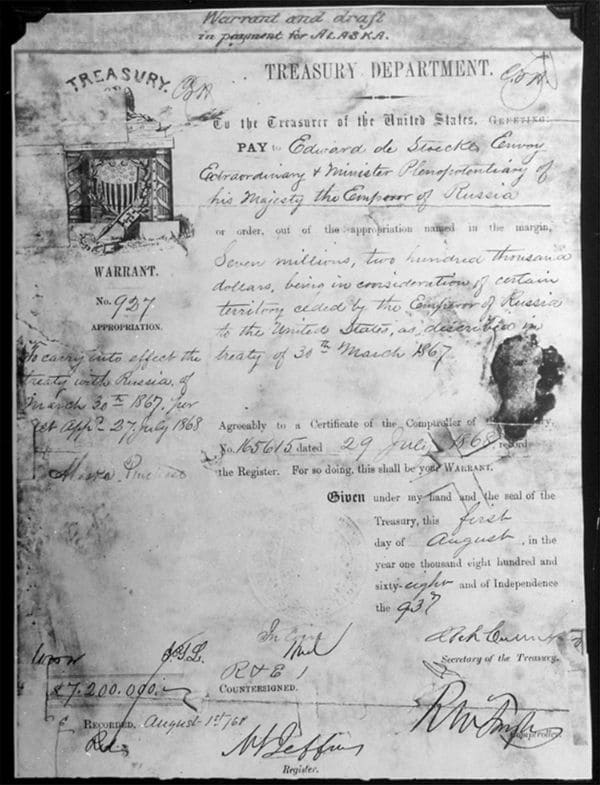 Warrant and draft
in payment for ALASKA.
TREASURY.
TREASURY DEPARTMENT.
To the Treasurer of the United States, GREETING:
PAY to Edward de Stoeckl Envoy
Extraordinary & Minister Plenopotentiary of
his Majesty the Emperor of Russia
or order, out of the appropriation named in the margin,
Seven millions, two hundred thousand
dollars, being in consideration of certain
territory ceded by the Emperor of Russia
to the United States, as described in
treaty of 30th March 1867
WARRANT.
No. 927
APPROPRIATION.
To carry into effect the
treaty with Russia of
March 30th 1867. per
act App'd 27 July 1868
Alaska Purchase
Agreeably to a Certificate of the Comptroller of the
No. 165615 dated 29 July 1868, record
the Register. For so doing, this shall be your WARRANT.
Given under my hand and the seal of the
Treasury, this first
day of August, in the
year one thousand eight hundred and
sixty-eight and of Independence
the 93d
Secretary of the Treasury.
R & E 1
COUNTERSIGNED.
$7.200.000.
Comptroller.
RECORDED. August 1st/68
Register.